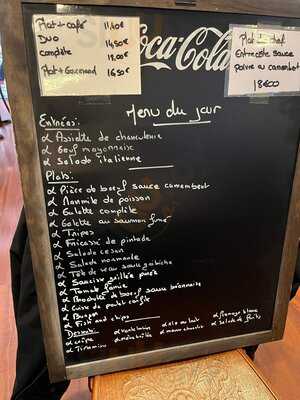 Plat + café 11,40€
DUO 14,50€
complète 18,00€
Plat + Gourmand 16,50€
Coca-Cola
Plat + chef
Entrecôte sauce
Poivre ou camembert
18€00
Menu du jour
Entrées:
Assiette de charcuterie
Oeuf mayonnaise
Salade italienne
Plats:
Pièce de boeuf sauce camembert
Marmite de poisson
Galette complète
Galette au saumon fumé
Tripes
Fricassé de pintade
Salade cesar
Salade normande
Tête de veau sauce gribiche
Saucisse grillée purée
Tomate farcie
Brochette de boeuf sauce béarnaise
Cuisse de poulet confite
Burger
Fish and chips
Desserts:
crêpe
Tiramisu
fromage blanc
salade de fruits